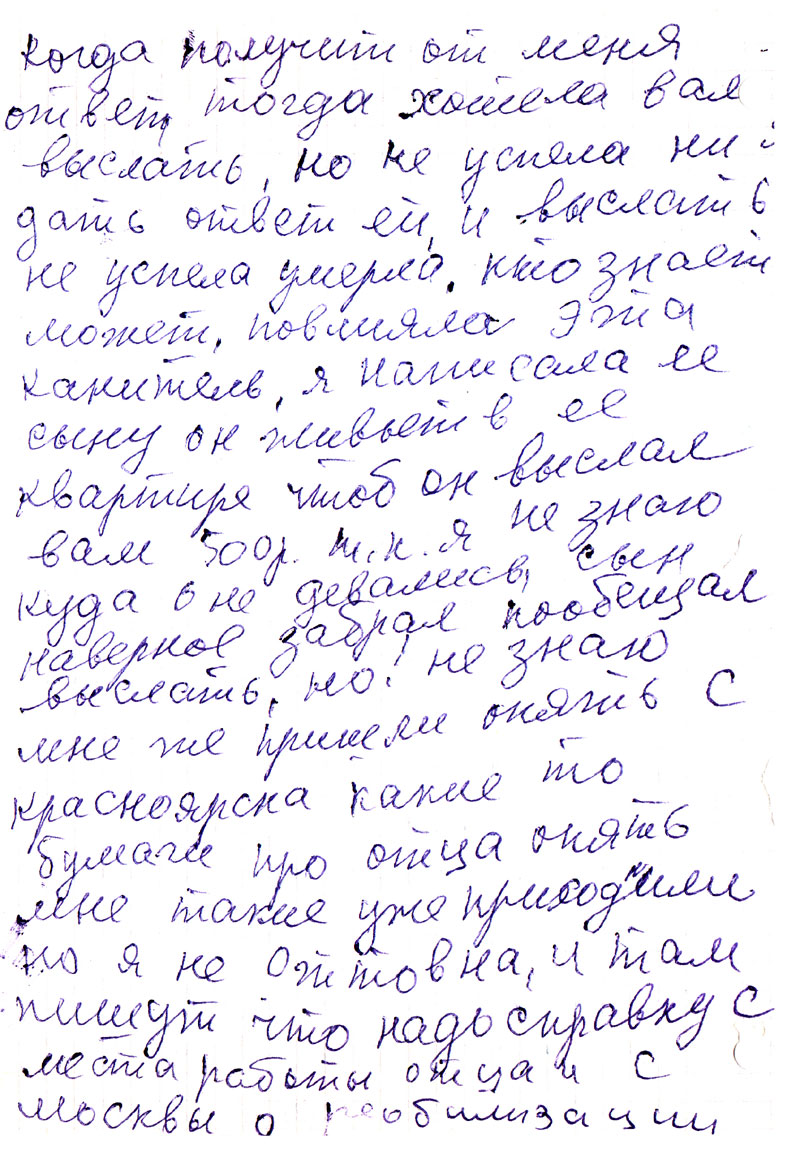 когда получит от меня
ответ, тогда хотела вам
выслать, но не успела ни
дать ответ ей, и выслать
не успела умерла. кто знает
может, повлияла эта
канитель, я написала ее
сыну он живьет в ее
квартире чтоб он выслал
вам 500р. т.к. я не знаю
куда оне девались, сын
наверное забрал пообещал
выслать, но! не знаю
мне же пришли опять с
красноярска какие то
бумаги про отца опять
мне такие уже приходили
но я не Оттовна, и там
пишут что надо справку с
места работы отца и с
москвы о реобилизации